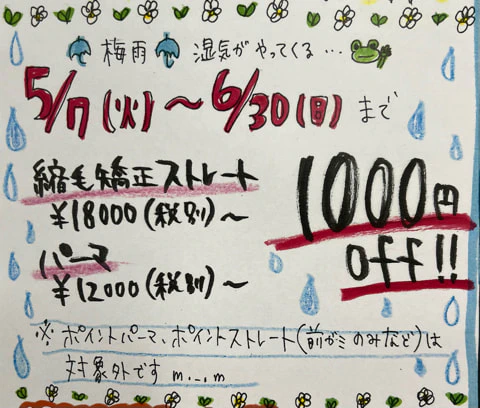 梅雨 湿気がやってくる…
5/7(火)~6/30(日)まで
縮毛矯正ストレート
¥18000(税別)~
パーマ
¥12000(税別)~
1000円
off!!
※ポイントパーマ、ポイントストレート(前ガミのみなど)は
対象外ですm._.m